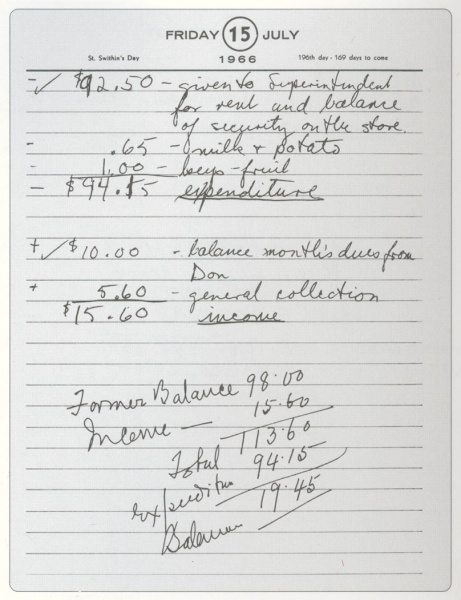 FRIDAY 15 JULY
St. Swithin's Day 1966 196th day - 169 days to come
- ✓ $92.50 - given to Superintendent
for rent and balance
of security on the store.
- .65 - milk & potato
- 1.00 - - fruit
- $94.15 expenditure
+ ✓ $10.00 - balance month's dues from
Don
+ 5.60 - general collection
$15.60 income
Former Balance 98.00
Income — 15.60
Total 113.60
Expenditure 94.15
Balance 19.45